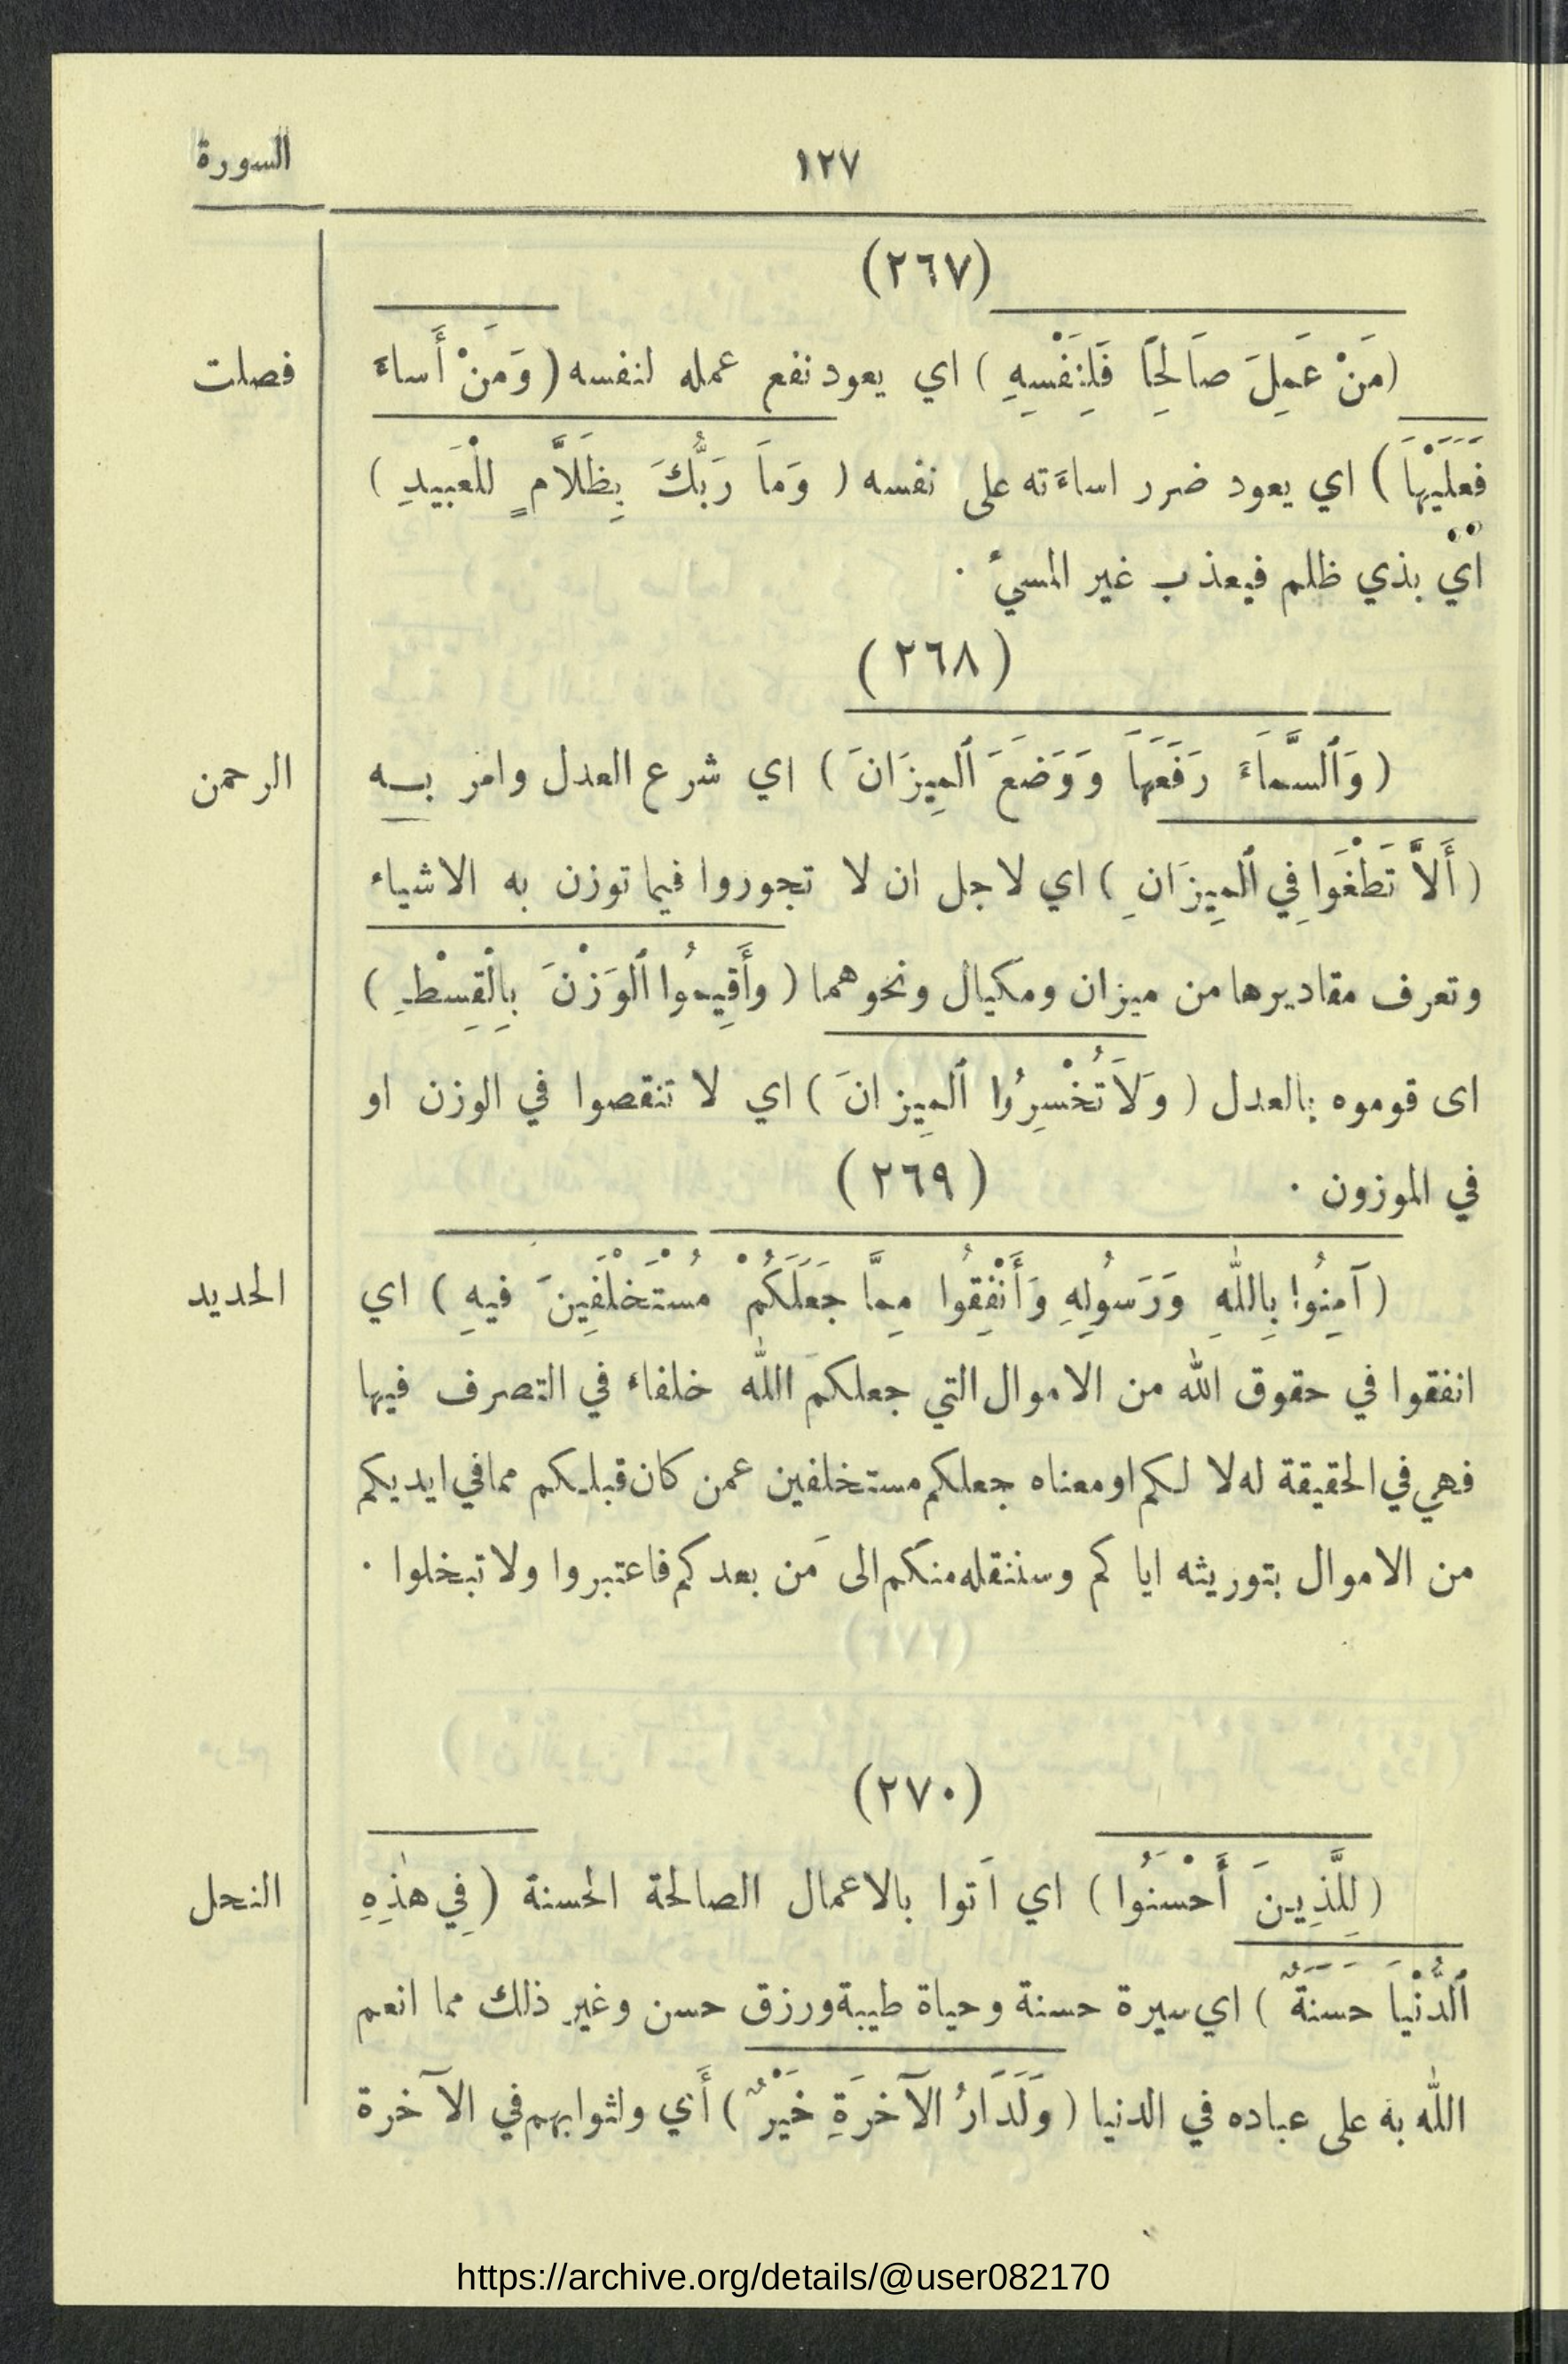 السورة
١٢٧
(٢٦٧)
(مَنْ عَمِلَ صَالِحًا فَلِنَفْسِهِ) اي يعود نفع عمله لنفسه (وَمَنْ أَساءَ
فصلت
فَعَلَيْهَا) اي يعود ضرر اساءَته على نفسه (وَمَا رَبُّكَ بِظَلَّامٍ لِلْعَبِيدِ)
ايْ بذي ظلم فيعذب غير المسيءُ .
(٢٦٨)
(وَٱلسَّمَاءَ رَفَعَهَا وَوَضَعَ ٱلْمِيزَانَ) اي شرع العدل وامر به
الرحمن
(أَلاَّ تَطْغَوْا فِي ٱلْمِيزَانِ) اي لاجل ان لا تجوروا فيما توزن به الاشياء
وتعرف مقاديرها من ميزان ومكيال ونحوهما (وأَقِيمُوا ٱلْوَزْنَ بِالْقِسْطِ)
اى قوموه بالعدل (وَلَا تُخْسِرُوا ٱلْمِيزانَ) اي لا تنقصوا في الوزن او
في الموزون .
(٢٦٩)
(آمِنُوا بِاللهِ وَرَسُولِهِ وَأَنْفِقُوا مِمَّا جَعَلَكُمْ مُسْتَخْلَفِينَ فيهِ) اي
الحديد
انفقوا في حقوق الله من الاموال التي جعلكم الله خلفاء في التصرف فيها
فهي في الحقيقة له لا لكم او معناه جعلكم مستخلفين عمن كان قبلكم مما في ايديكم
من الاموال بتوريثه اياكم وسننقله منكم الى مَن بعدكم فاعتبروا ولا تبخلوا .
(٢٧٠)
(لِلَّذِينَ أَحْسَنُوا) اي اَتوا بالاعمال الصالحة الحسنة (فِي هٰذِهِ
النحل
ٱلدُّنْيَا حَسَنَةٌ) اي سيرة حسنة وحياة طيبة ورزق حسن وغير ذلك مما انعم
الله به على عباده في الدنيا (وَلَدَارُ الآخرَةِ خَيْرٌ) أَي ولثوابهم في الآخرة
https://archive.org/details/@user082170